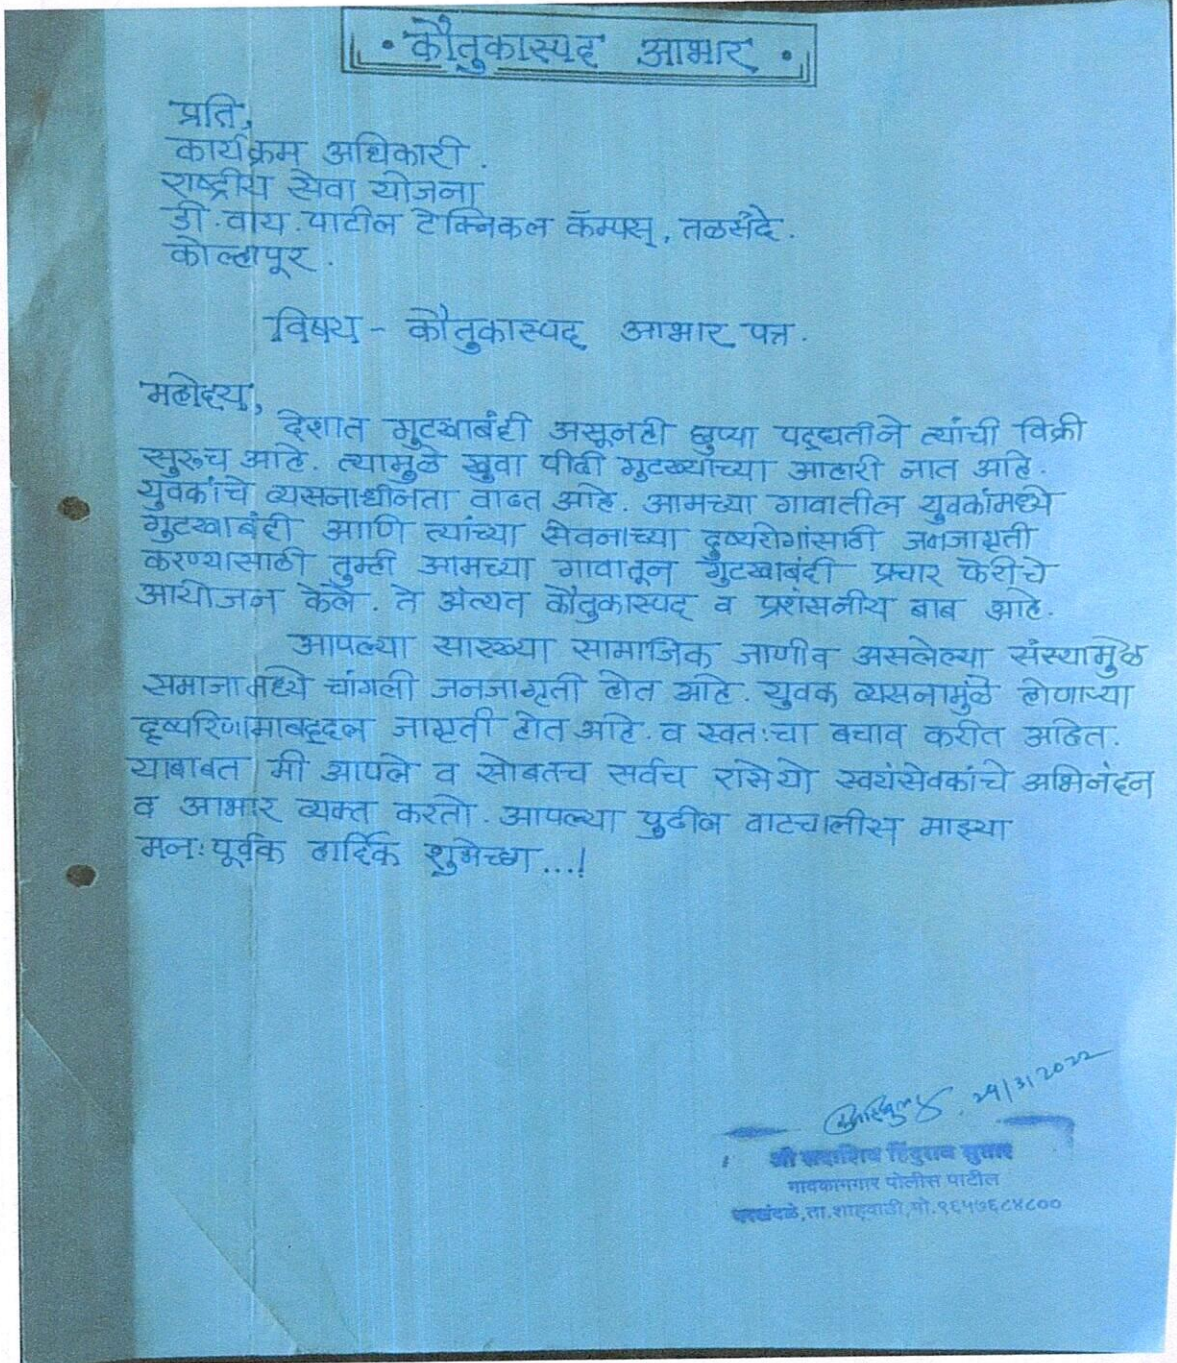 • कौतुकास्पद आभार •
प्रति,
कार्यक्रम अधिकारी.
राष्ट्रीय सेवा योजना
डी.वाय.पाटील टेक्निकल कॅम्पस्, तळसंदे.
कोल्हापूर.
विषय - कौतुकास्पद आभार पत्र.
महोदय,
देशात गुटखाबंदी असूनही छुप्या पद्धतीने त्यांची विक्री
सुरूच आहे. त्यामुळे युवा पीढी गुटख्याच्या आहारी जात आहे.
युवकांचे व्यसनाधीनता वाढत आहे. आमच्या गावातील युवकांमध्ये
गुटखाबंदी आणि त्यांच्या सेवनाच्या दुष्यरोगांसाठी जनजागृती
करण्यासाठी तुम्ही आमच्या गावातून गुटखाबंदी प्रचार फेरीचे
आयोजन केले. ते अंत्यत कौतुकास्पद व प्रशंसनीय बाब आहे.
आपल्या सारख्या सामाजिक जाणीव असलेल्या संस्थामुळे
समाजामध्ये चांगली जनजागृती होत आहे. युवक व्यसनामुळे होणाऱ्या
दृष्यरिणामाबद्दल जागृती होत आहे. व स्वतःचा बचाव करीत आहेत.
याबाबत मी आपले व सोबतच सर्वच रासेयो स्वयंसेवकांचे अभिनंदन
व आभार व्यक्त करतो. आपल्या पुढील वाटचालीस माझ्या
मनःपूर्वक हार्दिक शुभेच्छा...!
29/3/2022
श्री सदाशिव हिंदुराव सुतार
गावकामगार पोलीस पाटील
ता.शाहुवाडी,मो.९६५७६८४८००